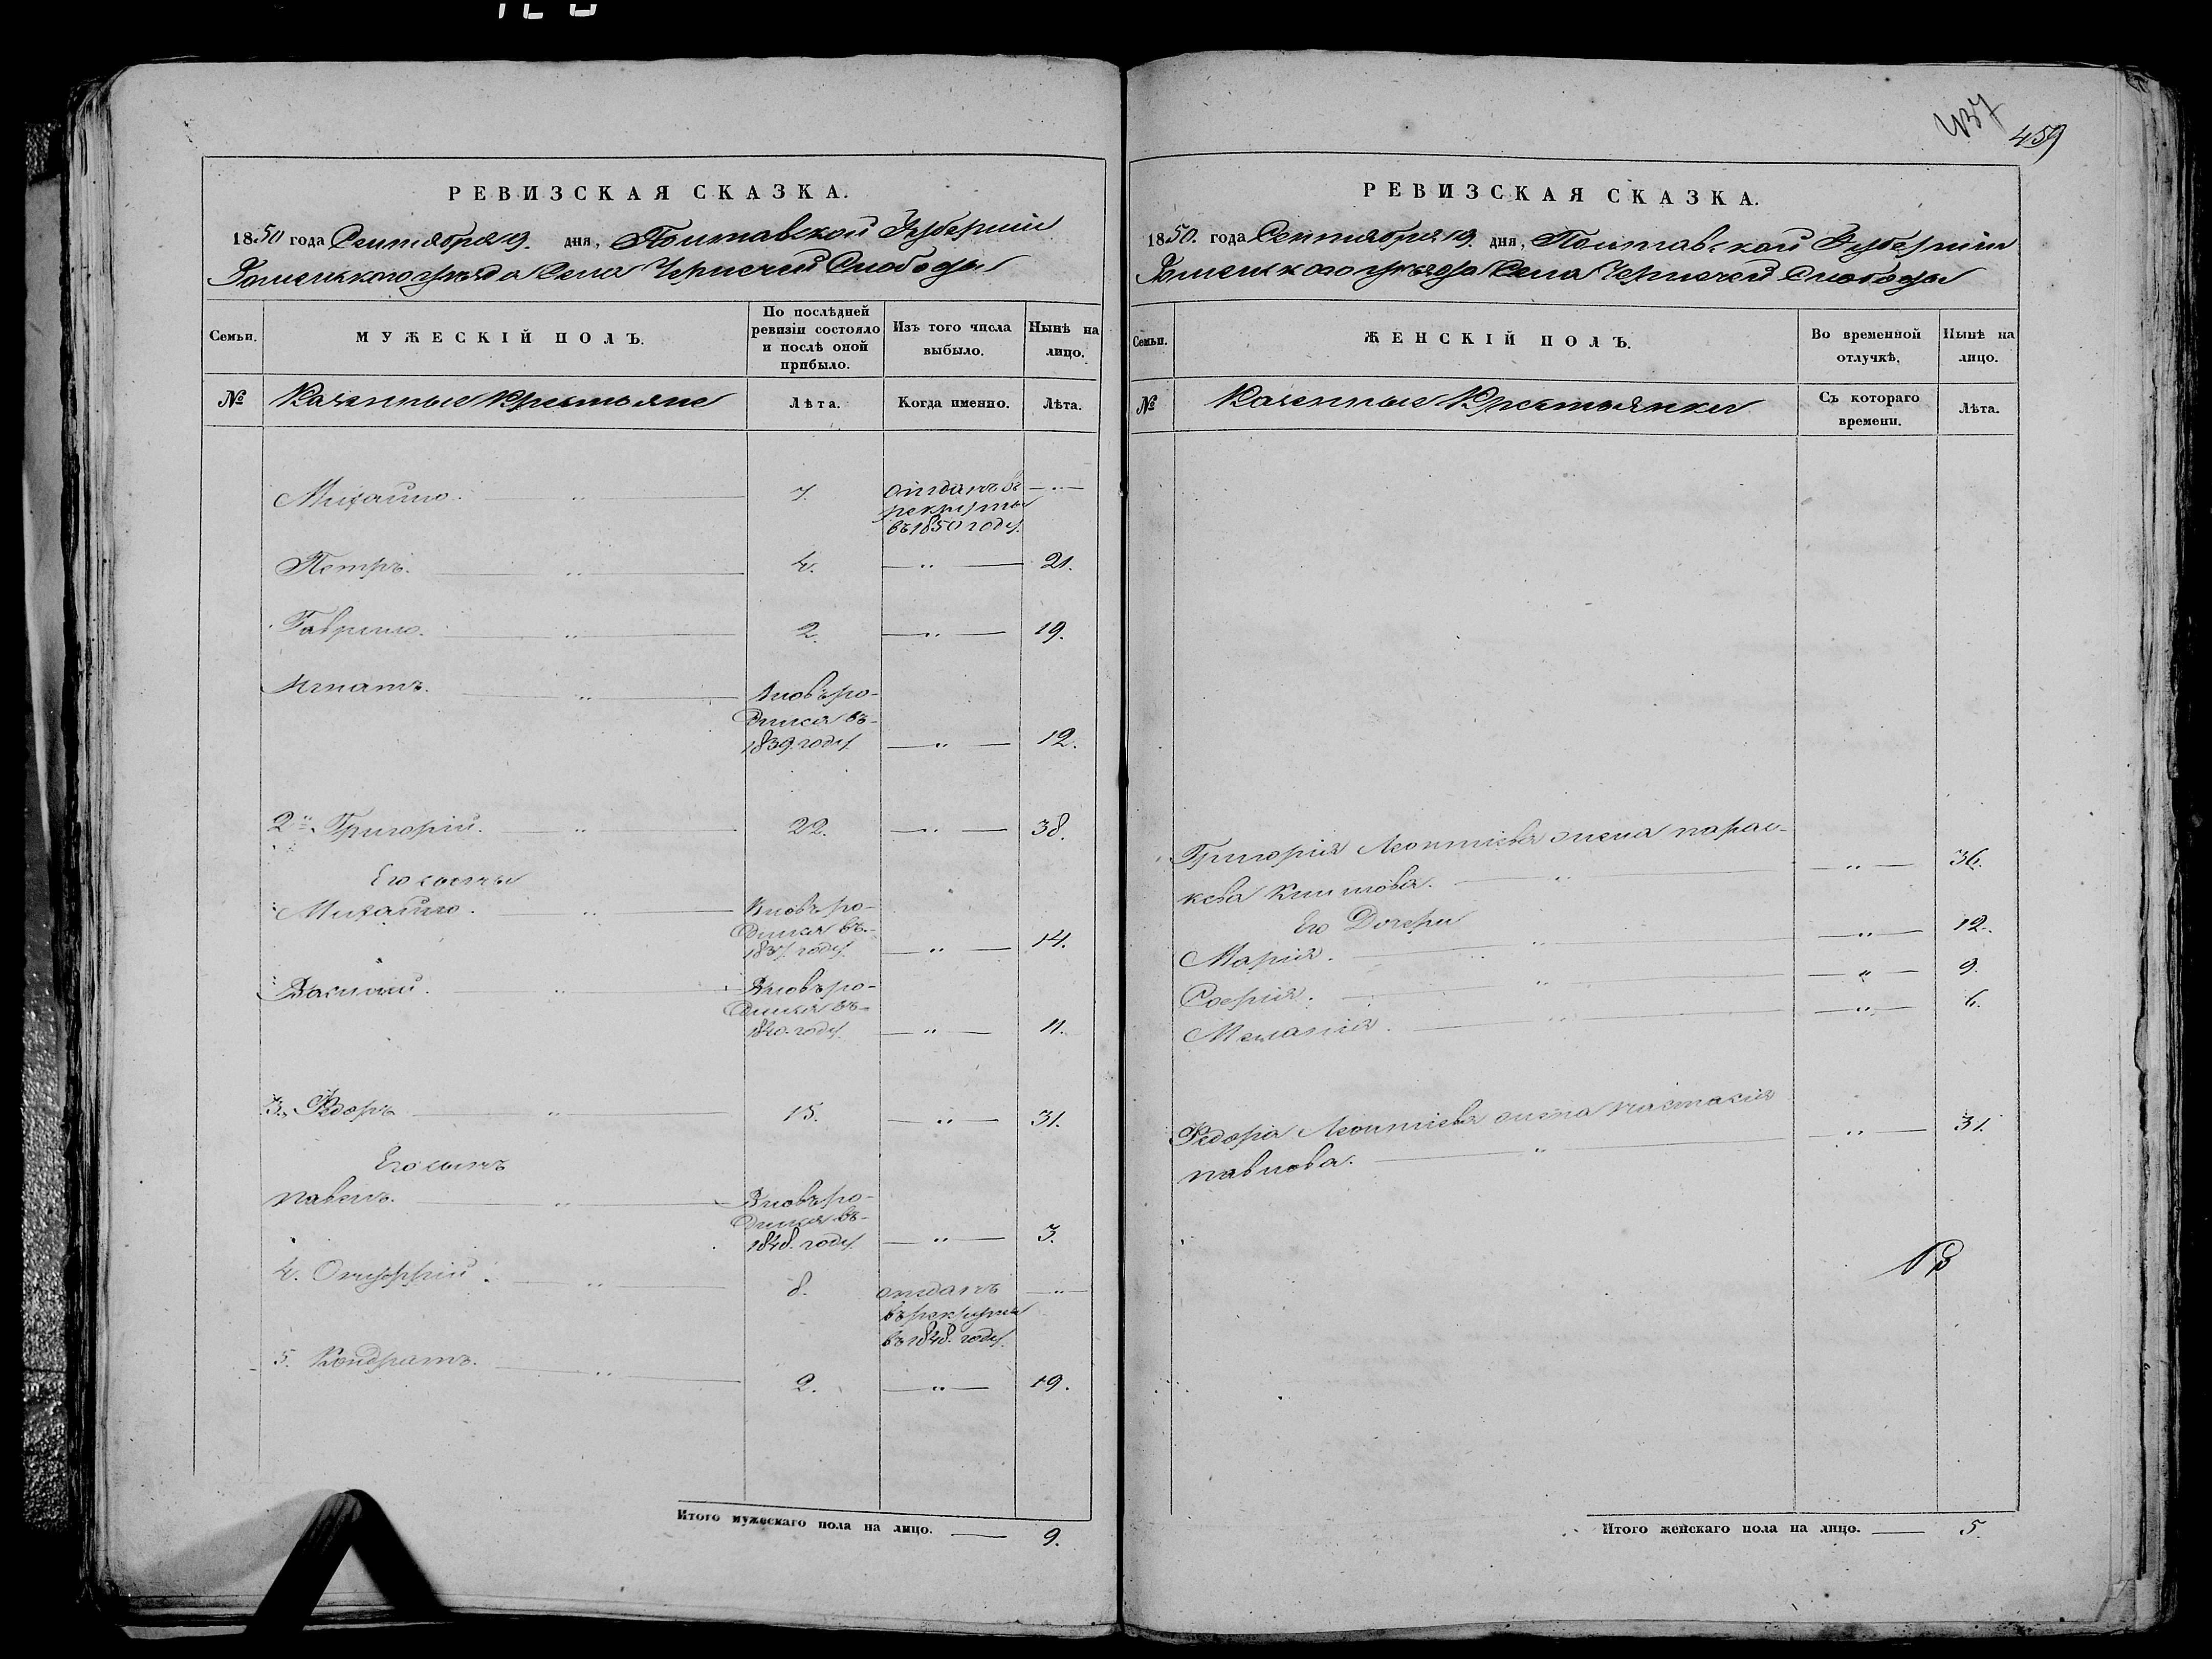 437
459
РЕВИЗСКАЯ СКАЗКА.
1850 года Сентября 19. дня, Полтавской Губернии
Роменского уезда Села Чернечей Слободы
Семьи.
МУЖЕСКІЙ ПОЛЪ.
По послѣдней ревизіи состояло и послѣ оной прибыло.
Изъ того числа выбыло.
Нынѣ на лицо.
№
Казенные Крестьяне
Лѣта.
Когда именно.
Лѣта.
Михайло. 7. отданъ въ
рекруты
въ 1850 году.
Петръ. 4. 21.
Гаврило. 2. 19.
Игнатъ. Вновь ро-
дился въ
1839. году 12.
2й Григорій. 22. 38.
Его сыновья
Михайло. Вновь ро-
дился въ
1837. году 14.
Василий. Вновь ро-
дился въ
1840. году 11.
3. Федоръ 15. 31.
Его сынъ
Павелъ. Вновь ро-
дился въ
1848. году 3.
4. 8. отданъ
въ рекруты
въ 1848. году
5. Кондратъ. 2. 19.
Итого мужескаго пола на лицо. 9.
РЕВИЗСКАЯ СКАЗКА.
1850. года Сентября 19. дня, Полтавской Губернии
Роменского уезда Села Чернечей Слободы
Семьи.
ЖЕНСКІЙ ПОЛЪ.
Во временной отлучкѣ.
Нынѣ на лицо.
№
Казенные Крестьянки
Съ котораго времени.
Лѣта.
Григория Леонтиева жена Парас-
кева 36.
Его Дочери
Мария. 12.
9.
Мелания. 6.
Федора Леонтиева жена Настасия
Павлова. 31.
Итого женскаго пола на лицо. 5.